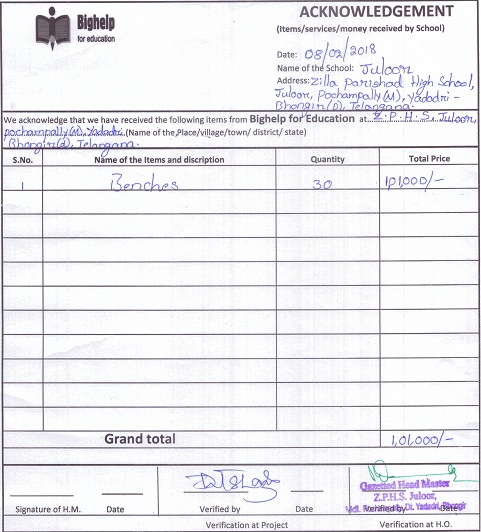 Bighelp
for education
ACKNOWLEDGEMENT
(Items/services/money received by School)
Date: 08/02/2018
Name of the School: Juloor
Address: Zilla Parishad High School,
Juloor, Pochampally (M), Yadadri -
Bhongir (D), Telangana.
We acknowledge that we have received the following items from Bighelp for Education at Z.P.H.S, Juloor,
pochampally (M), Yadadri. (Name of the,Place/village/town/ district/ state)
Bhongir (d), Telangana.
S.No. Name of the Items and discription Quantity Total Price
1 Benches 30 1,01,000/-
Grand total 1,01,000/-
Gazetted Head Master
Z.P.H.S. Juloor,
Dt. Yadadri
Signature of H.M. Date Verified by Date Verified by Date
Verification at Project Verification at H.O.